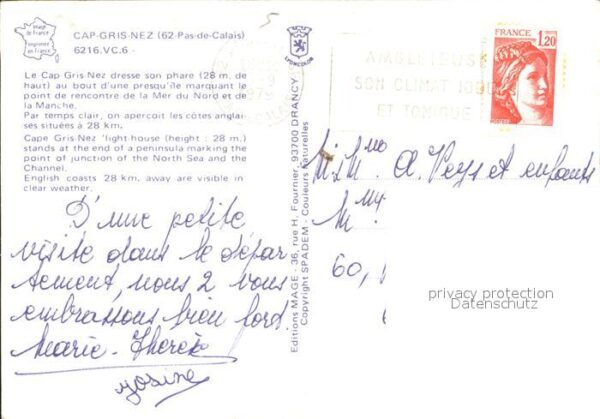 image de France
imprimée en France
CAP-GRIS-NEZ (62-Pas-de-Calais)
6216.VC.6 -
LYONCOLOR
Le Cap Gris Nez dresse son phare (28 m. de
haut) au bout d'une presqu'île marquant le
point de rencontre de la Mer du Nord et de
la Manche.
Par temps clair, on aperçoit les côtes anglai-
ses situées à 28 km.
Cape Gris Nez 'light house (height : 28 m.)
stands at the end of a peninsula marking the
point of junction of the North Sea and the
Channel.
English coasts 28 km. away are visible in
clear weather.
D'une petite
visite dans le dépar
tement, nous 2 vous
embrassons bien fort
Marie-Thérèse
Josine
Editions MAGE - 36, rue H. Fournier, 93700 DRANCY
Copyright SPADEM - Couleurs Naturelles
AMBLETEUSE
SON CLIMAT IODÉ
ET TONIQUE
FRANCE
1,20
M. M.me A. Veys et enfants
60,
privacy protection
Datenschutz